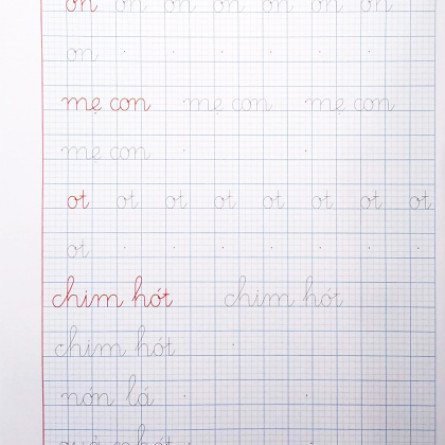 on on on on on on on
on
mẹ con mẹ con mẹ con
mẹ con
ot ot ot ot ot ot ot ot
ot
chim hót chim hót
chim hót
nón lá